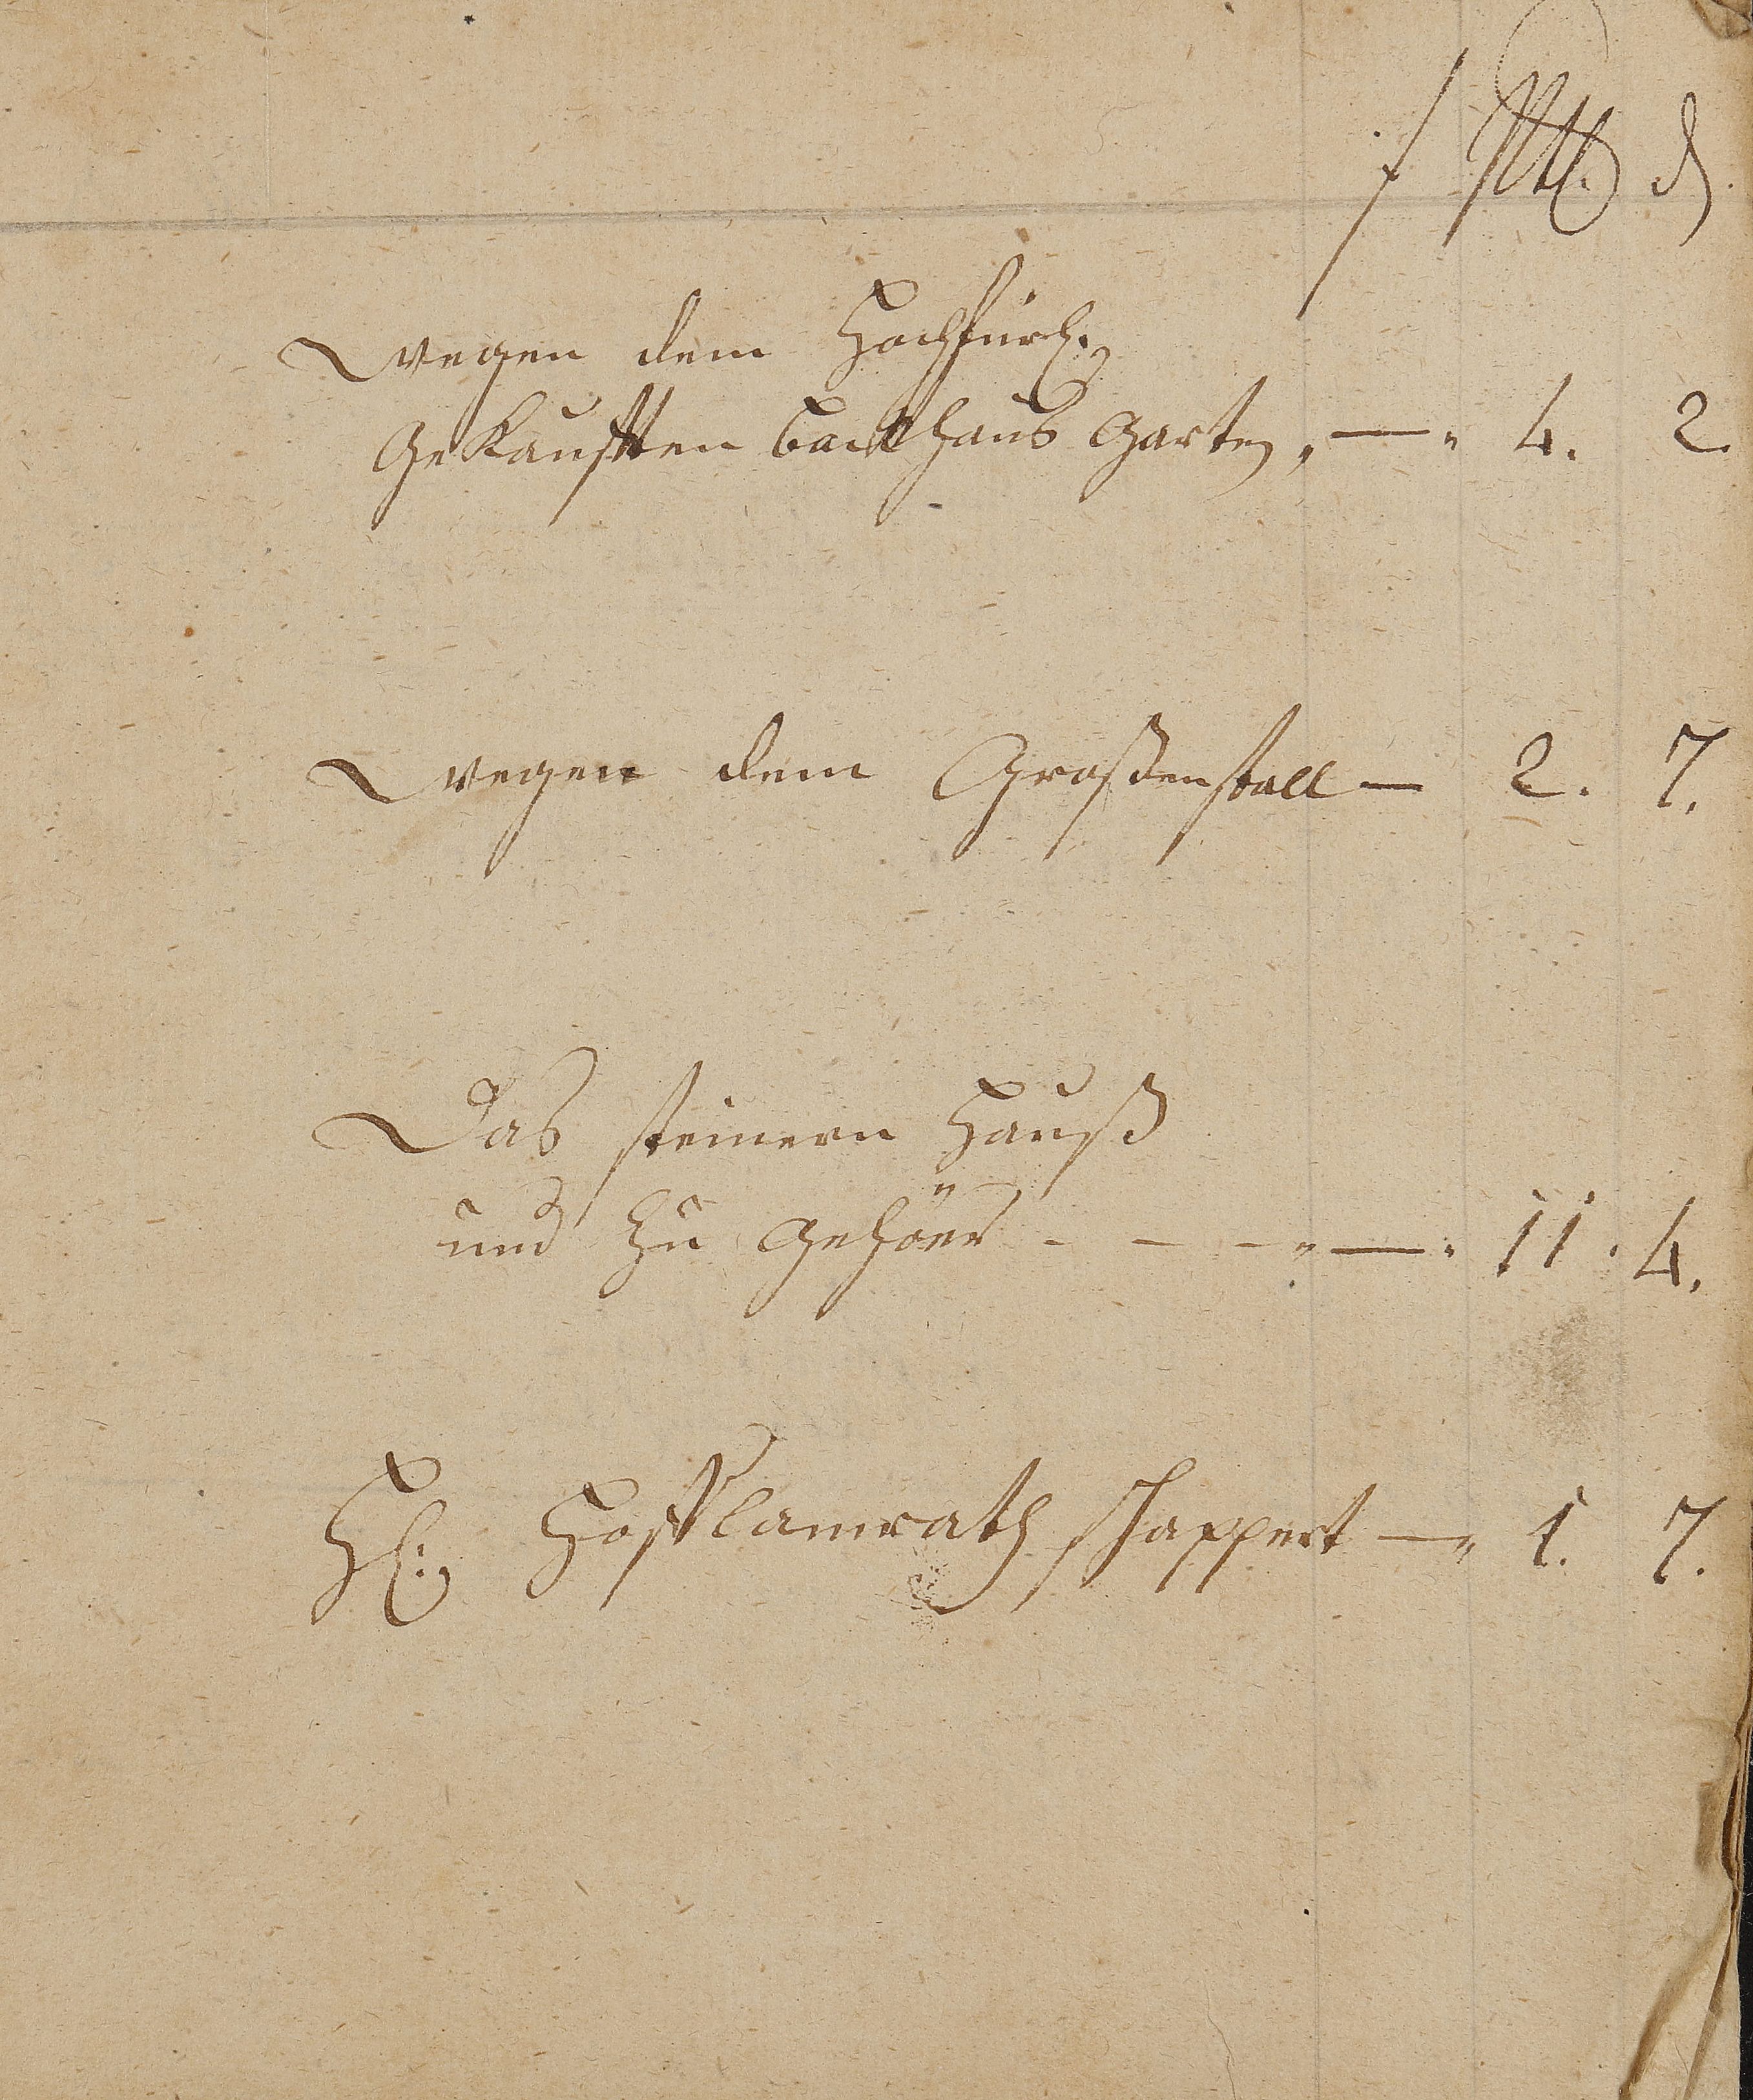 f ß d
wegen dem Hochfürl.
Gekaufften backhaus Garten, — " 4. 2.
wegen dem Großenstall — 2. 7.
Das steinern Hauß
und zu Gehöer - - - " — " 11. 4.
H: Hoff Camrath schappert — " 1. 7.